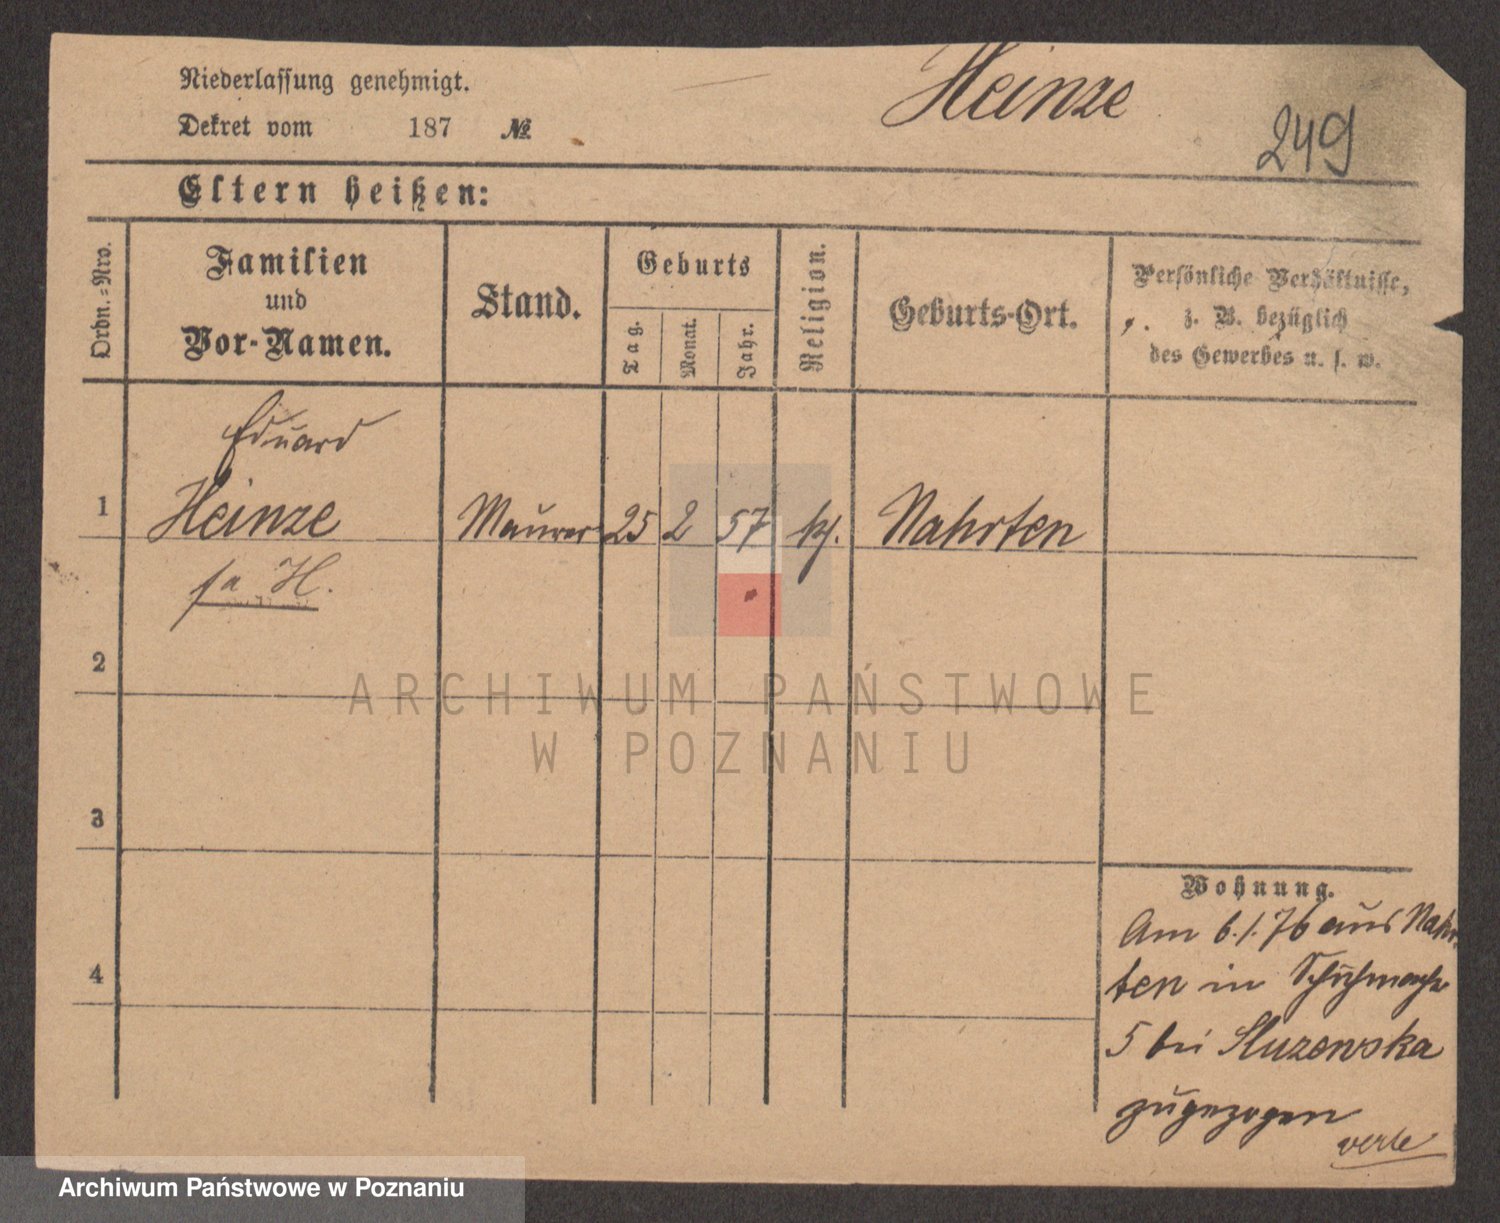 Niederlassung genehmigt.
Heinze
Dekret vom 187 №
249
Eltern heißen:
Ordn.-Nro.
Familien und Vor-Namen.
Stand.
Geburts
Tag.
Monat.
Jahr.
Religion.
Geburts-Ort.
Persönliche Verhältnisse,
z. B. bezüglich
des Gewerbes u. s. w.
Eduard
1 Heinze Maurer 25 2 57 Nahrten
H.
2
3
4
Wohnung.
Am 6.1.76 aus Nahr-
ten in Schuhmacher
5 bei Sluzewska
zugezogen
verte
ARCHIWUM PAŃSTWOWE
W POZNANIU
Archiwum Państwowe w Poznaniu